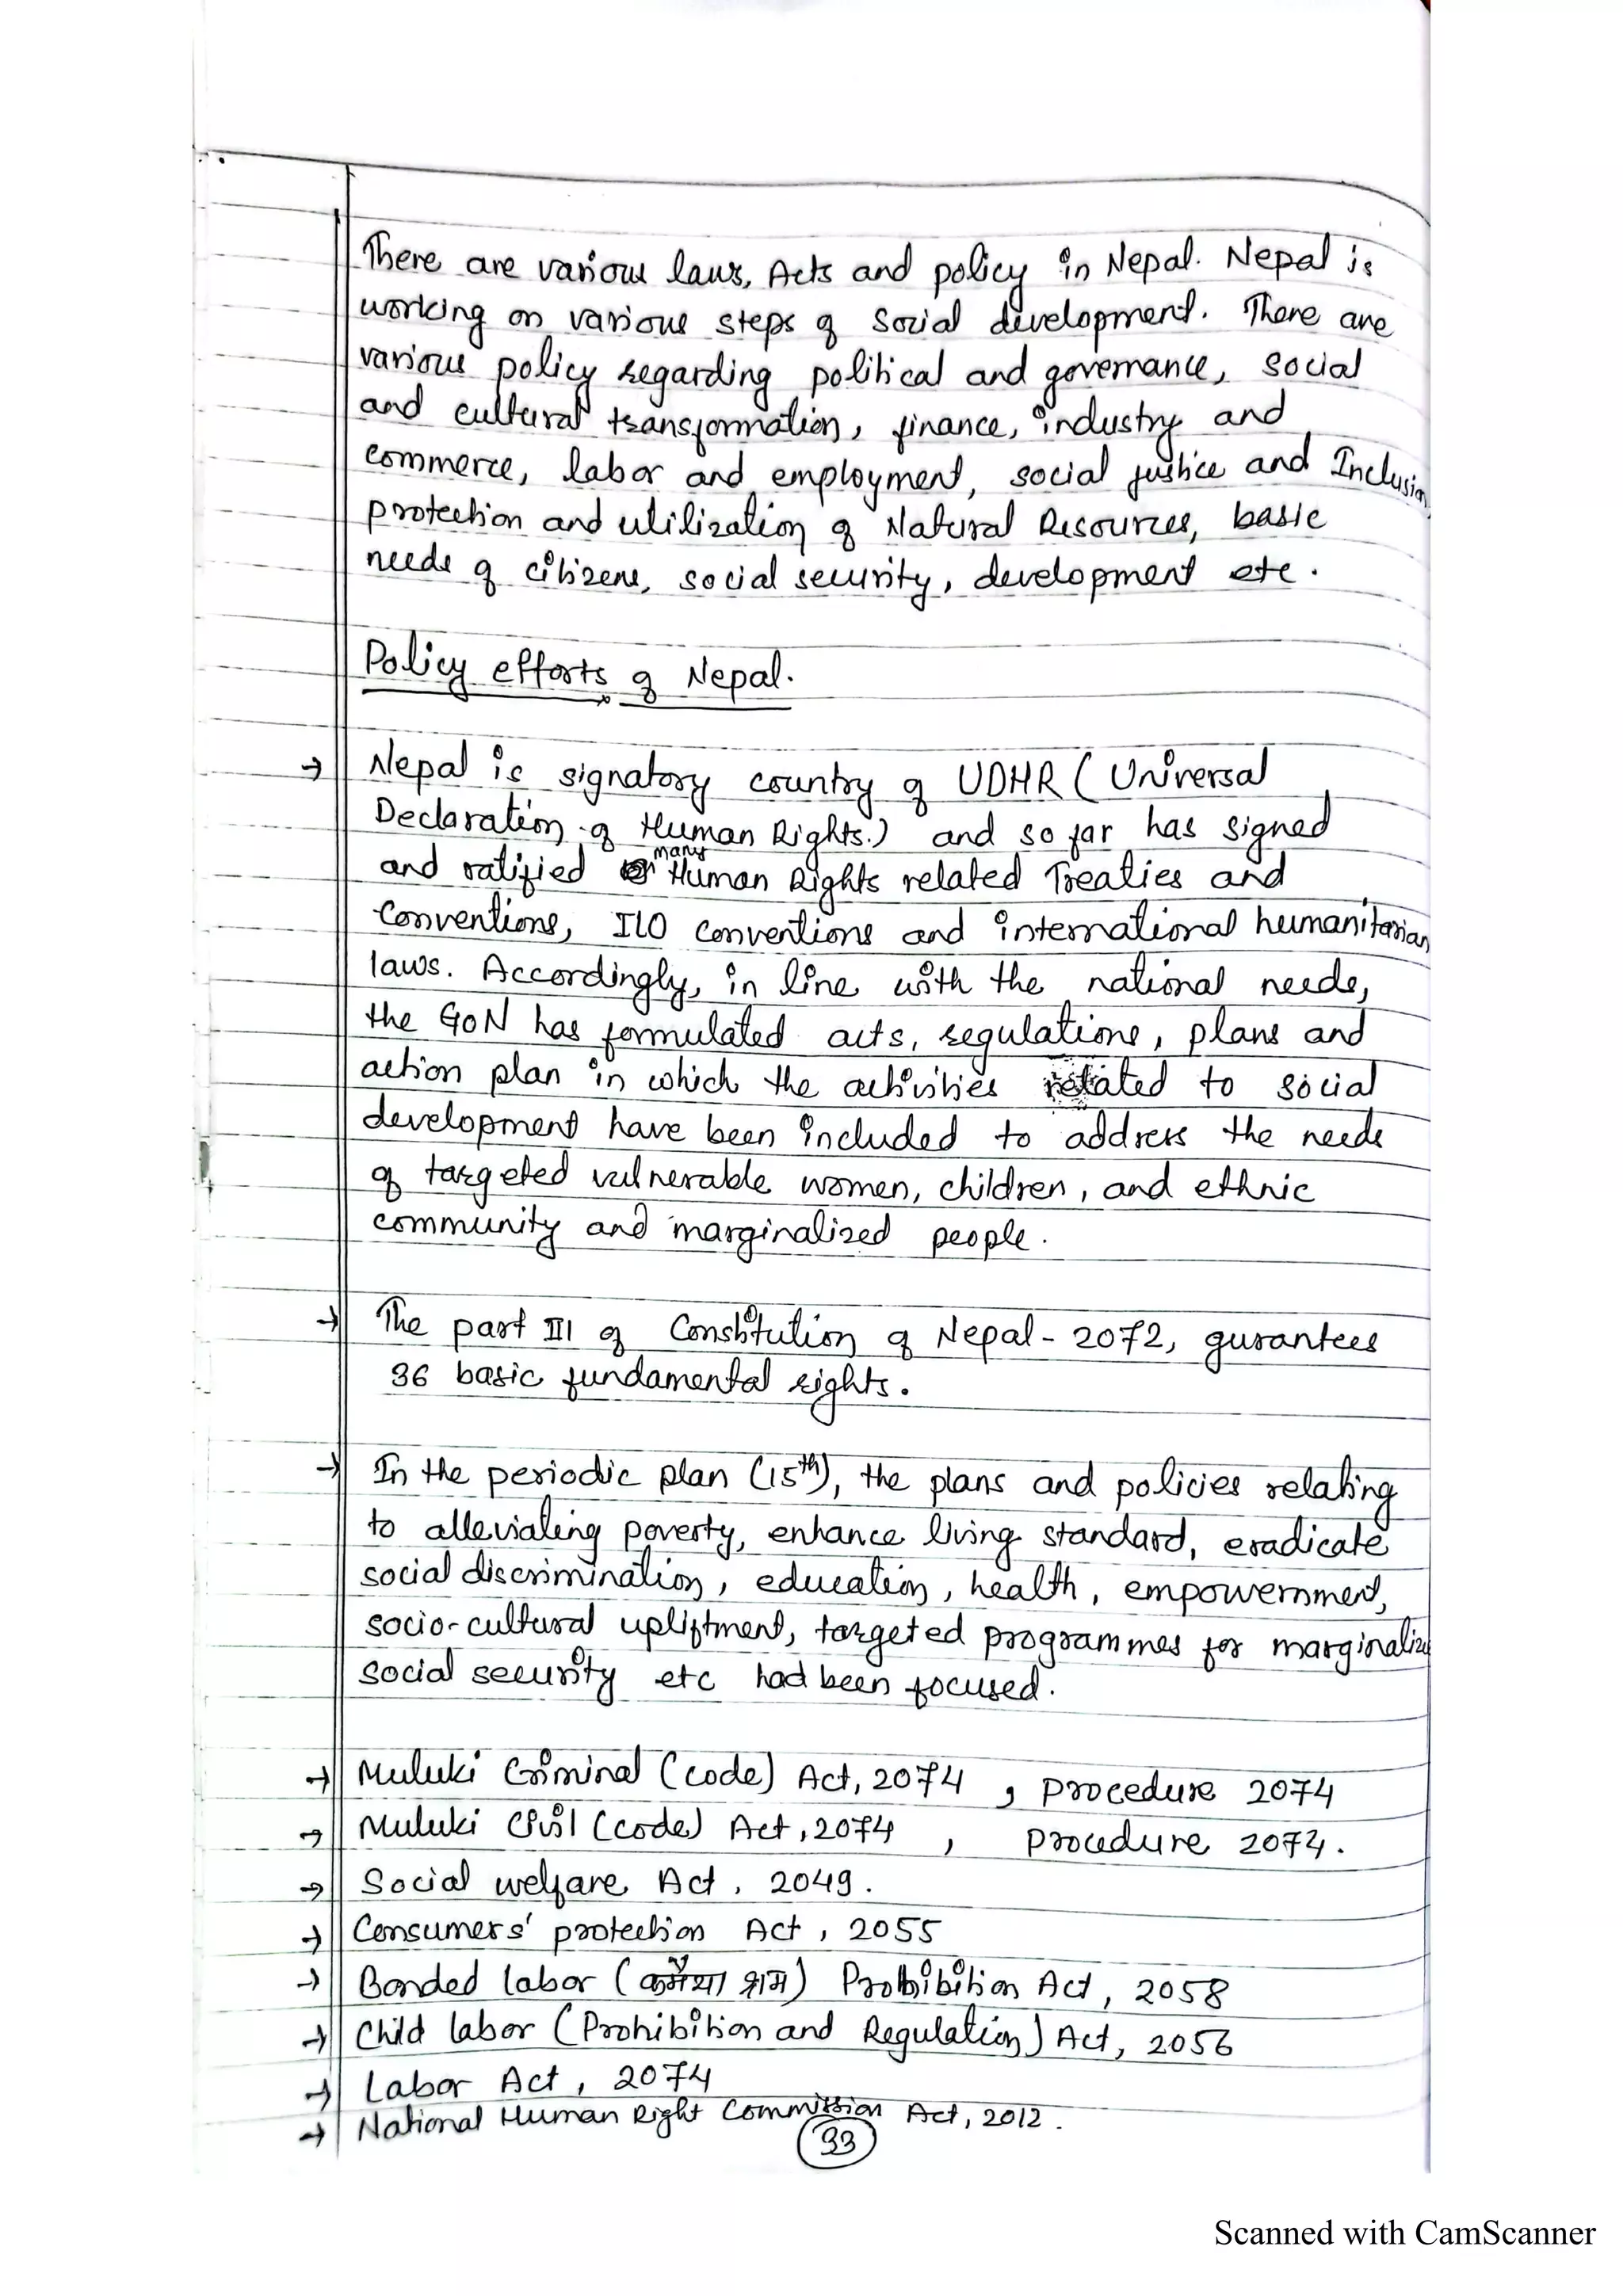 There are various laws, Acts and policy in Nepal. Nepal is
working on various steps of Social development. There are
various policy regarding political and governance, social
and cultural transformation, finance, industry and
commerce, labor and employment, social justice and Inclusion,
protection and utilization of Natural Resources, basic
needs of citizens, social security, development etc.
Policy efforts of Nepal.
→ Nepal is signatory country of UDHR (Universal
Declaration of Human Rights.) and so far has signed
many
and ratified Human Rights related Treaties and
Conventions, ILO conventions and international humanitarian
laws. Accordingly, in line with the national needs,
the GoN has formulated acts, regulations, plans and
action plan in which the activities related to social
development have been included to address the needs
of targeted vulnerable women, children, and ethnic
community and marginalized people.
→ The part III of Constitution of Nepal - 2072, gurantees
36 basic fundamental rights.
→ In the periodic plan (15th), the plans and policies relating
to alleviating poverty, enhance living standard, eradicate
social discrimination, education, health, empowernment,
socio-cultural upliftment, targeted programmes for marginalize
social security etc had been focused.
→ Muluki Criminal (code) Act, 2074 , procedure 2074
→ Muluki Civil (code) Act, 2074 , procedure 2074.
→ Social welfare Act, 2049.
→ Consumers' protection Act, 2055
→ Bonded labor (कमैया श्रम) Prohibition Act, 2058
→ Child labor (Prohibition and Regulation) Act, 2056
→ Labor Act, 2074
→ National Human Right Commission Act, 2012.
33
Scanned with CamScanner